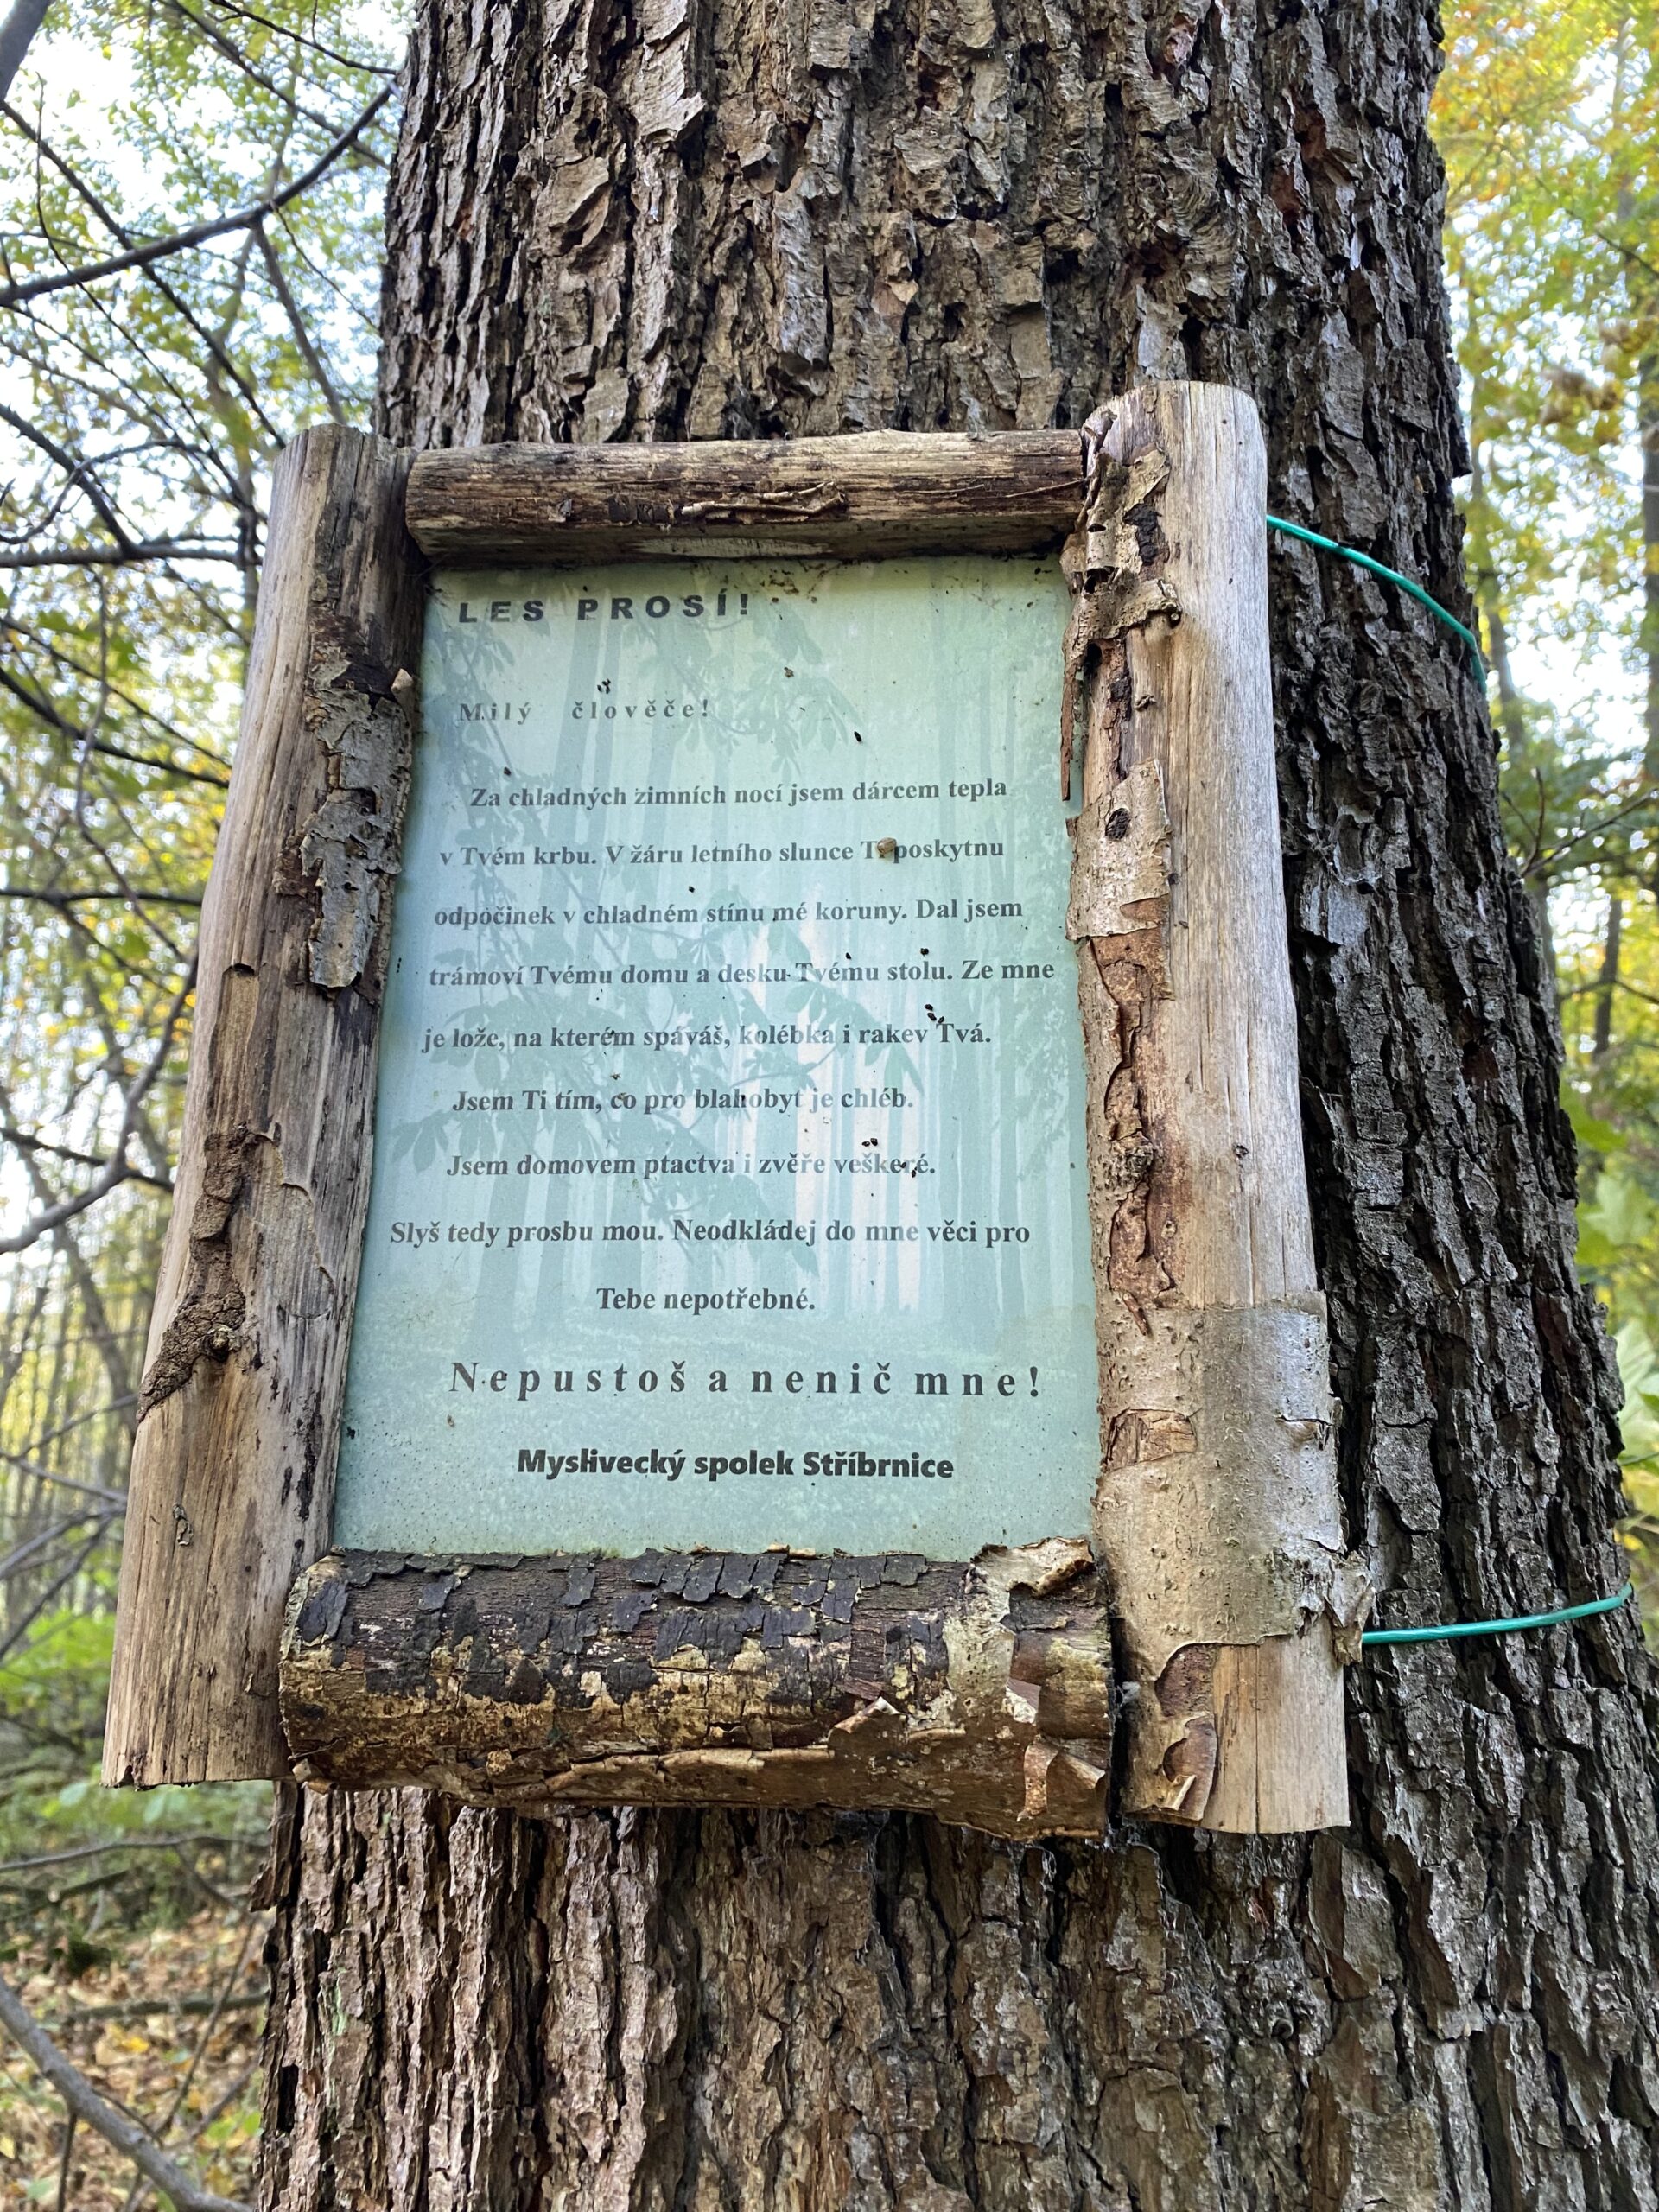 LES PROSÍ!
Milý člověče!
Za chladných zimních nocí jsem dárcem tepla
v Tvém krbu. V žáru letního slunce Ti poskytnu
odpočinek v chladném stínu mé koruny. Dal jsem
trámoví Tvému domu a desku Tvému stolu. Ze mne
je lože, na kterém spáváš, kolébka i rakev Tvá.
Jsem Ti tím, co pro blahobyt je chléb.
Jsem domovem ptactva i zvěře veškeré.
Slyš tedy prosbu mou. Neodkládej do mne věci pro
Tebe nepotřebné.
Nepustoš a nenič mne!
Myslivecký spolek Stříbrnice